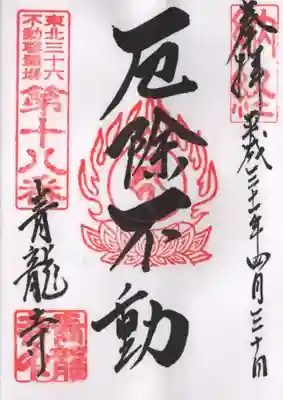 奉拝 平成三十一年四月三十日
厄除不動
東北三十六
不動尊霊場
第十八番
青龍寺